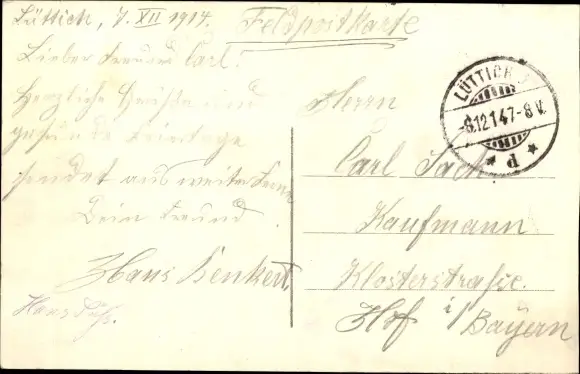 Lüttich, 7. XII 1914.
Feldpostkarte
Lieber Freund Carl!
Herzliche Grüße und
gesunde Feiertage
sendet aus weiter Ferne
Dein Freund
Hans Benkert
Hans
Herrn
Carl
Kaufmann
Klosterstraße.
Hof i/ Bayern
LÜTTICH
-8.12.14 7-8 V.
* d *